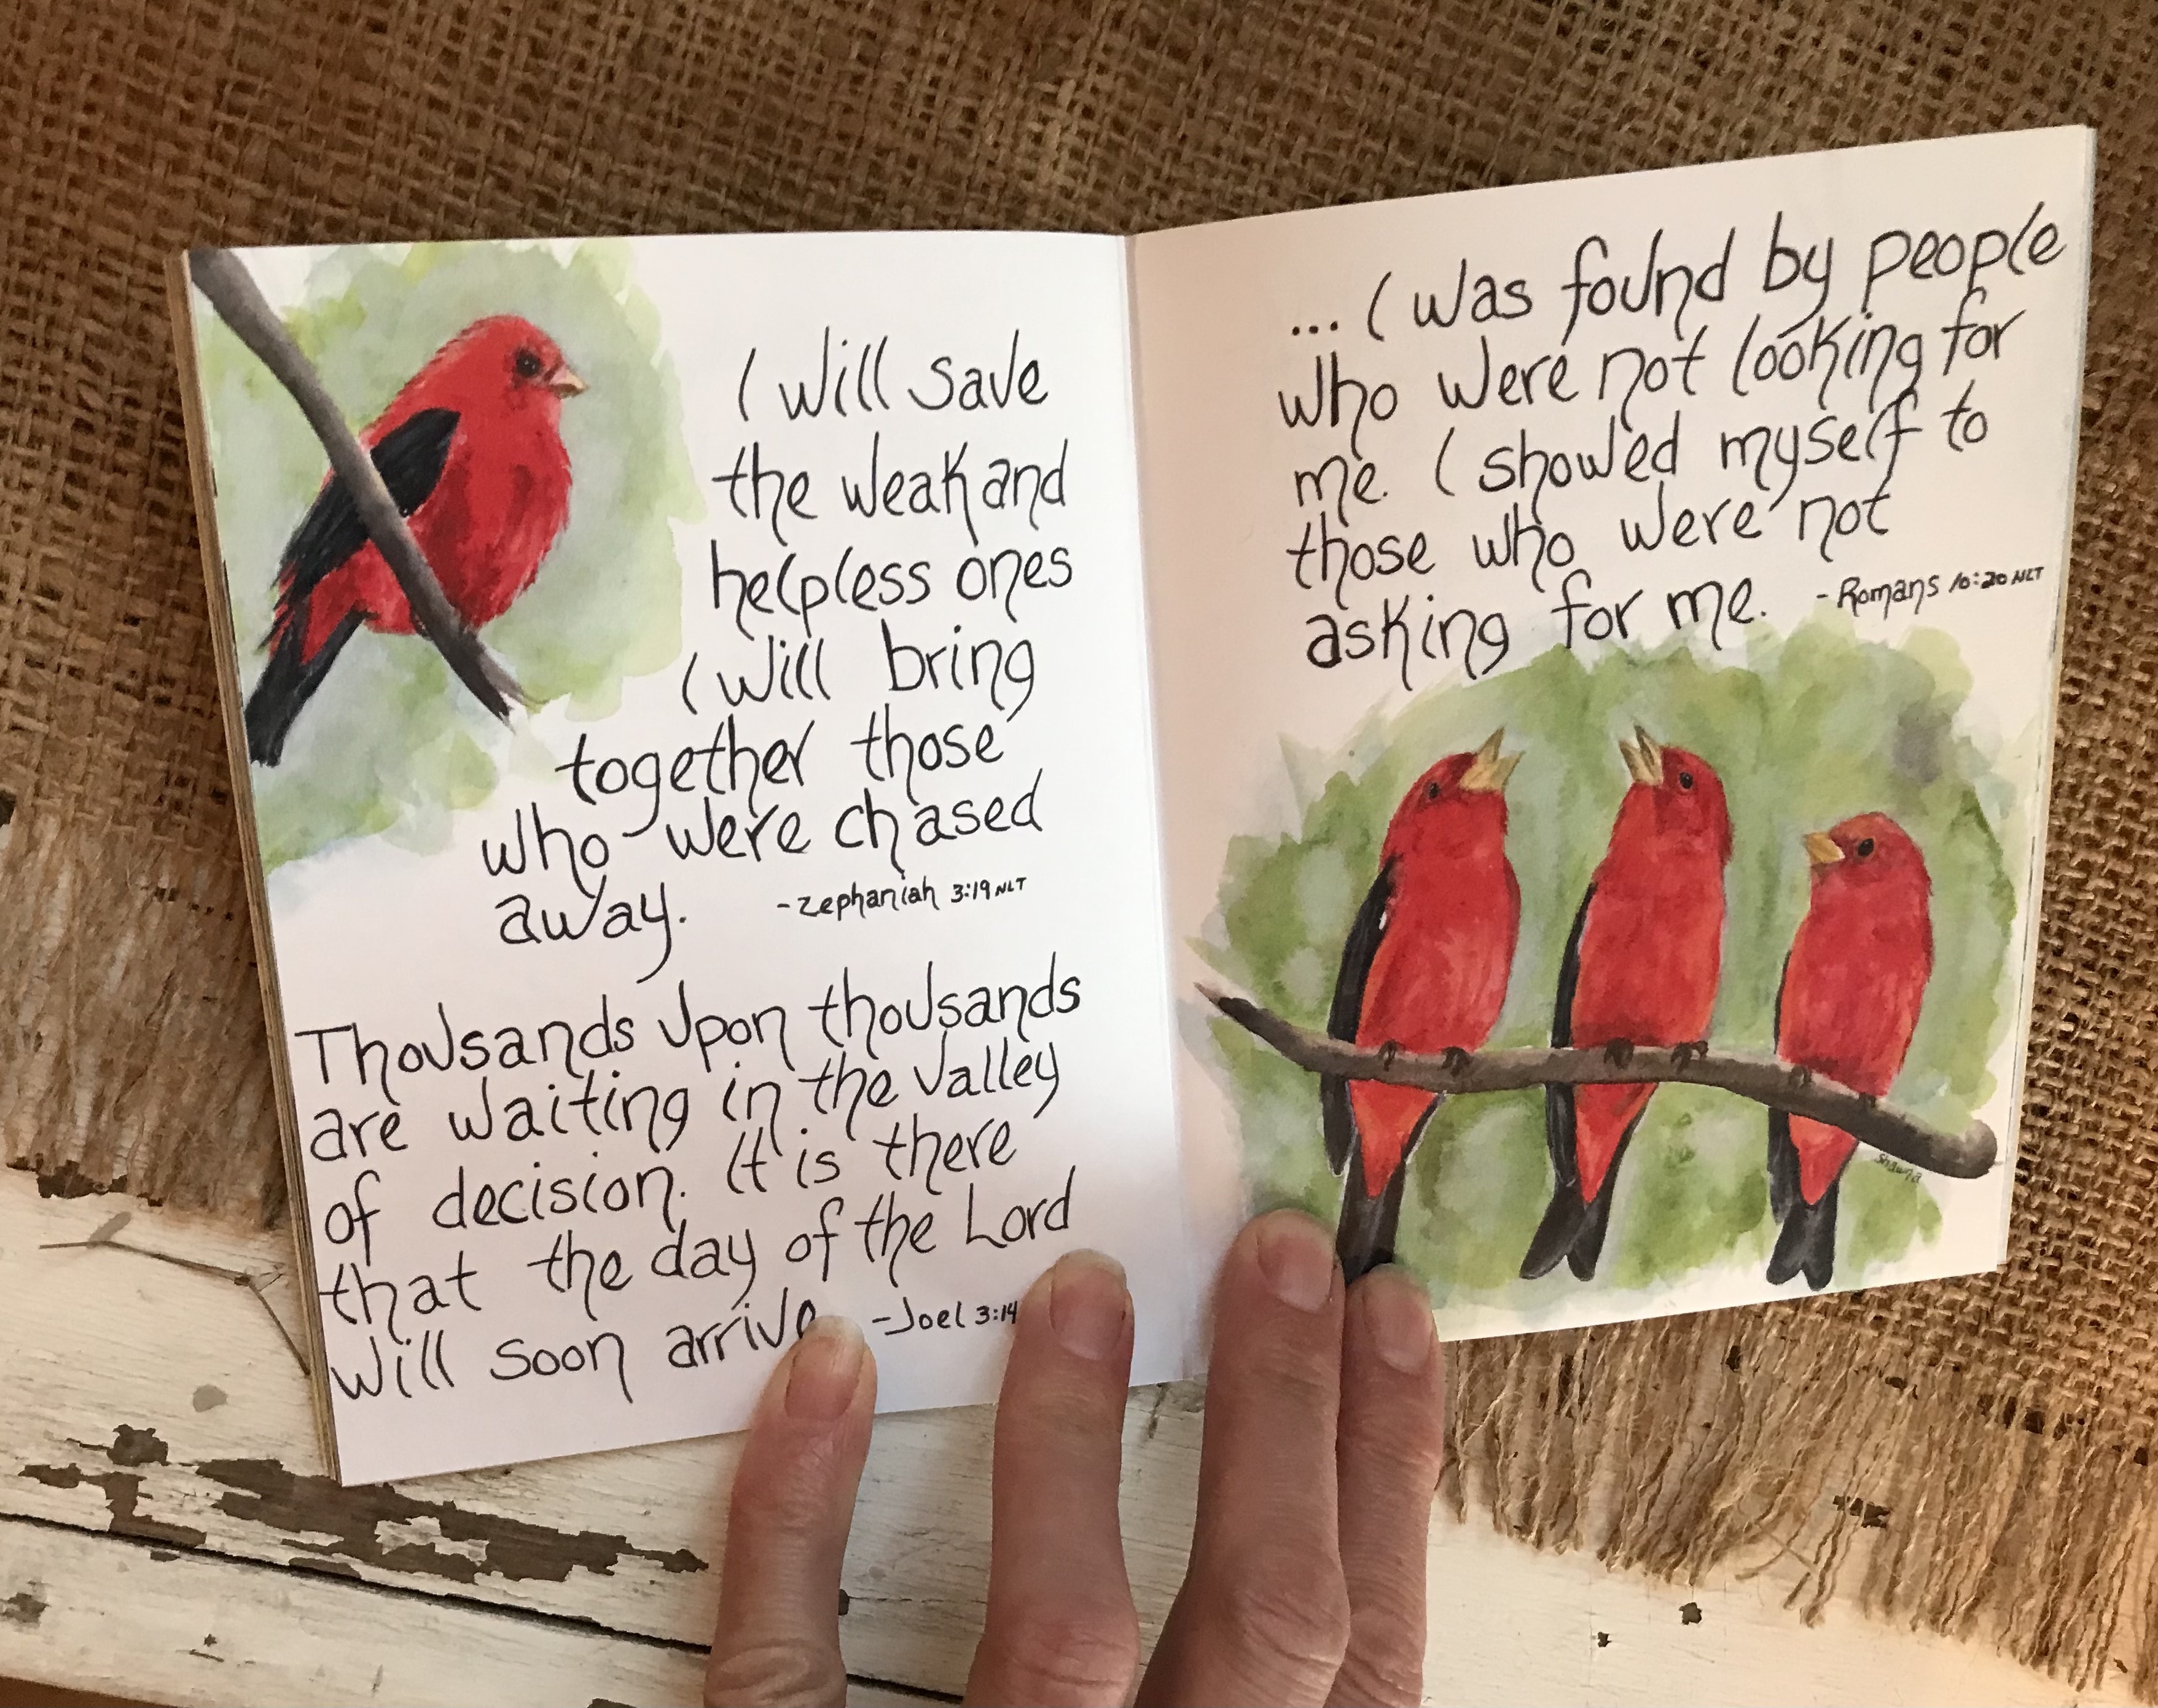 I will save
the weak and
helpless ones
I will bring
together those
who were chased
away. -Zephaniah 3:19 NLT
Thousands upon thousands
are waiting in the valley
of decision. It is there
that the day of the Lord
will soon arrive -Joel 3:14
... I was found by people
who were not looking for
me. I showed myself to
those who were not
asking for me. -Romans 10:20 NLT
Shawna